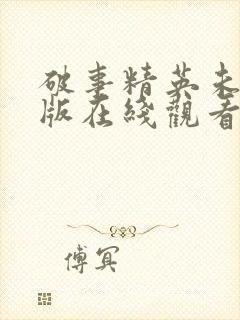 破事精英未
版在綫觀看
傅冥